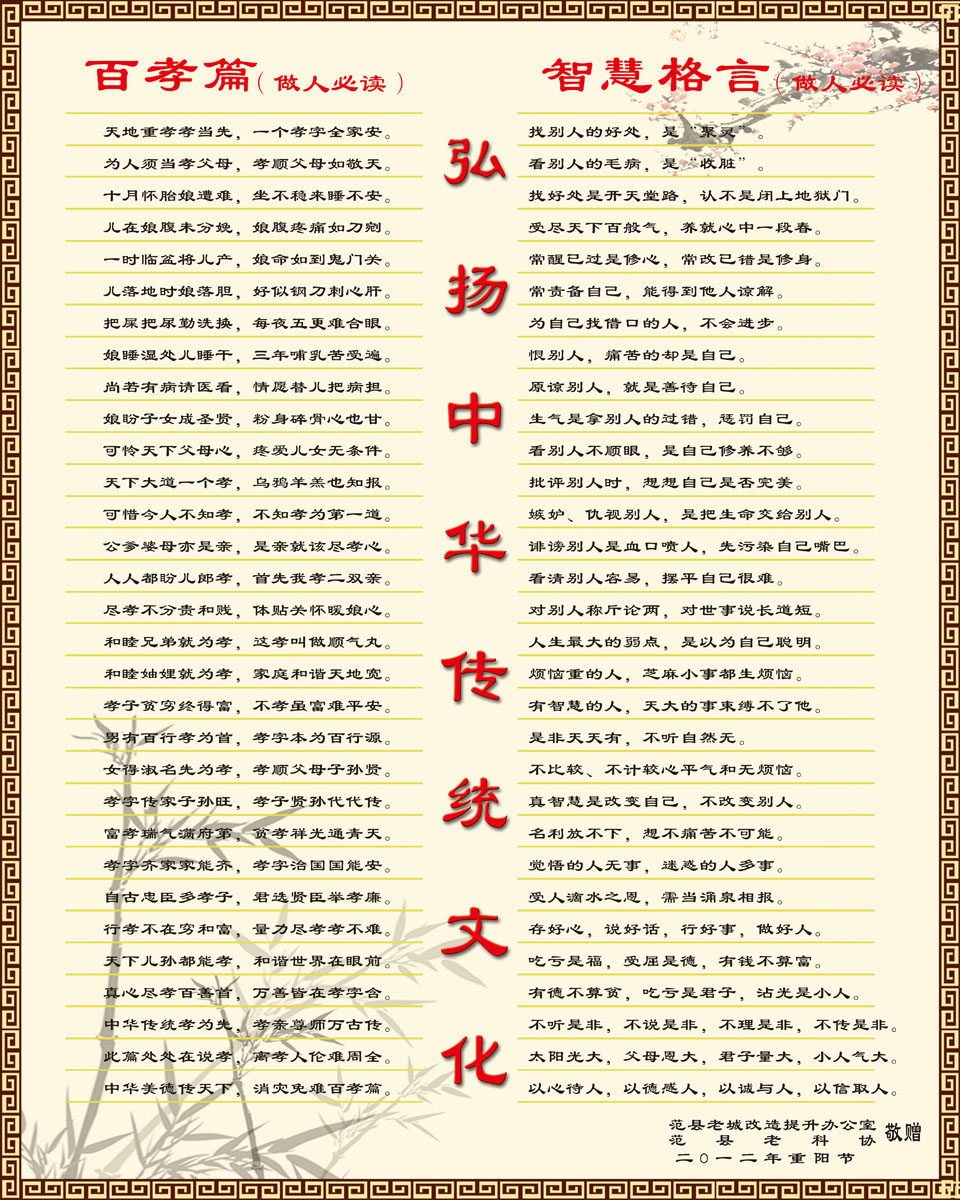 百孝篇（做人必读）
天地重孝孝当先，一个孝字全家安。
为人须当孝父母，孝顺父母如敬天。
十月怀胎娘遭难，坐不稳来睡不安。
儿在娘腹未分娩，娘腹疼痛如刀剜。
一时临盆将儿产，娘命如到鬼门关。
儿落地时娘落胆，好似钢刀刺心肝。
把屎把尿勤洗换，每夜五更难合眼。
娘睡湿处儿睡干，三年哺乳苦受遍。
尚若有病请医看，情愿替儿把病担。
娘盼子女成圣贤，粉身碎骨心也甘。
可怜天下父母心，疼爱儿女无条件。
天下大道一个孝，乌鸦羊羔也知报。
可惜今人不知孝，不知孝为第一道。
公爹婆母亦是亲，是亲就该尽孝心。
人人都盼儿郎孝，首先我孝二双亲。
尽孝不分贵和贱，体贴关怀暖娘心。
和睦兄弟就为孝，这孝叫做顺气丸。
和睦妯娌就为孝，家庭和谐天地宽。
孝子贫穷终得富，不孝虽富难平安。
男有百行孝为首，孝字本为百行源。
女得淑名先为孝，孝顺父母子孙贤。
孝字传家子孙旺，孝子贤孙代代传。
富孝瑞气满府第，贫孝祥光通青天。
孝字齐家家能齐，孝字治国国能安。
自古忠臣多孝子，君选贤臣举孝廉。
行孝不在穷和富，量力尽孝孝不难。
天下儿孙都能孝，和谐世界在眼前。
真心尽孝百善首，万善皆在孝字含。
中华传统孝为先，孝亲尊师万古传。
此篇处处在说孝，离孝人伦难周全。
中华美德传天下，消灾免难百孝篇。
弘扬中华传统文化
智慧格言（做人必读）
找别人的好处，是“聚灵”。
看别人的毛病，是“收脏”。
找好处是开天堂路，认不是闭上地狱门。
受尽天下百般气，养就心中一段春。
常醒已过是修心，常改已错是修身。
常责备自己，能得到他人谅解。
为自己找借口的人，不会进步。
恨别人，痛苦的却是自己。
原谅别人，就是善待自己。
生气是拿别人的过错，惩罚自己。
看别人不顺眼，是自己修养不够。
批评别人时，想想自己是否完美。
嫉妒、仇视别人，是把生命交给别人。
诽谤别人是血口喷人，先污染自己嘴巴。
看清别人容易，摆平自己很难。
对别人称斤论两，对世事说长道短。
人生最大的弱点，是以为自己聪明。
烦恼重的人，芝麻小事都生烦恼。
有智慧的人，天大的事束缚不了他。
是非天天有，不听自然无。
不比较、不计较心平气和无烦恼。
真智慧是改变自己，不改变别人。
名利放不下，想不痛苦不可能。
觉悟的人无事，迷惑的人多事。
受人滴水之恩，需当涌泉相报。
存好心，说好话，行好事，做好人。
吃亏是福，受屈是德，有钱不算富。
有德不算贫，吃亏是君子，沾光是小人。
不听是非，不说是非，不理是非，不传是非。
太阳光大，父母恩大，君子量大，小人气大。
以心待人，以德感人，以诚与人，以信取人。
范县老城改造提升办公室
范县老科协
敬赠
二〇一二年重阳节